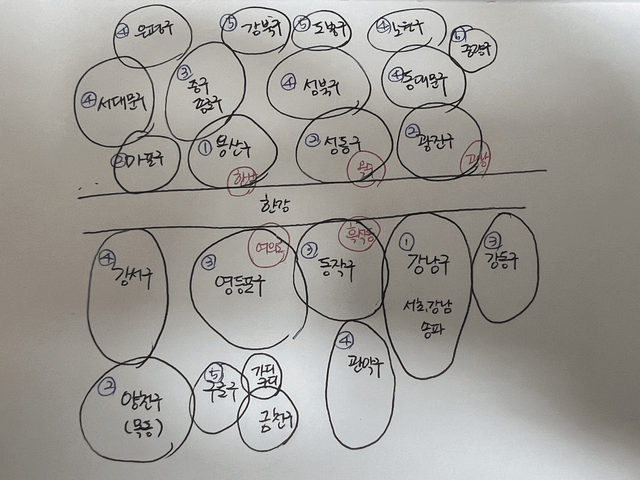 ④ 은평구
⑤ 강북구
⑤ 도봉구
④ 노원구
⑥ 중랑구
④ 서대문구
③
중구
종로구
④
성북구
④ 동대문구
② 마포구
① 용산구
한남
② 성동구
② 광진구
광남
한강
④
강서구
③
영등포구
여의도
③
동작구
흑석동
①
강남구
서초,강남
송파
③
강동구
②
양천구
(목동)
⑤
구로구
가디
구디
금천구
④
관악구